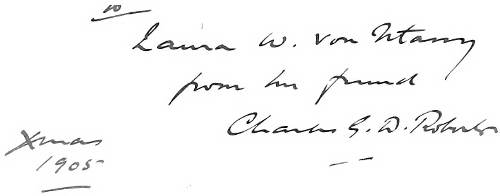 to
Laura W. von Utassy
from her friend
Charles G. D. Roberts
Xmas
1905